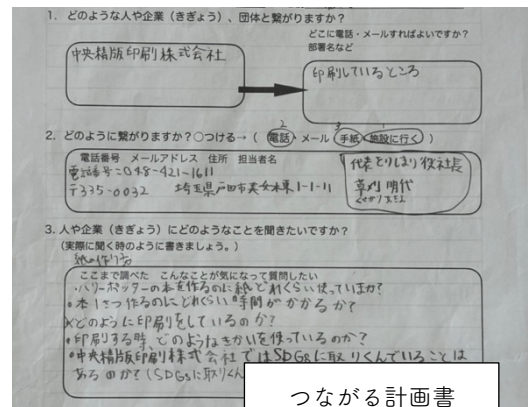 1. どのような人や企業（きぎょう）、団体と繋がりますか？
どこに電話・メールすればよいですか？
部署名など
中央精版印刷株式会社
印刷しているところ
2. どのように繋がりますか？○つける→（ 電話・メール 手紙 施設に行く ）
電話番号 メールアドレス 住所 担当者名
電話番号=048-421-1611
〒335-0032 埼玉県戸田市美女木東1-1-11
代表とりしまり役社長
草刈 明代
3. 人や企業（きぎょう）にどのようなことを聞きたいですか？
（実際に聞く時のように書きましょう。）
紙の作り方
ここまで調べた こんなことが気になって質問したい
・ハリーポッターの本を作るのに紙どれくらい使っていますか?
・本1さつ作るのにどれくらい時間がかかるか?
×どのように印刷をしているのか?
・印刷する時、どのようなきかいを使っているのか?
・中央精版印刷株式会社ではSDGsに取りくんでいることは
あるのか?(SDGsに取りくん
つながる計画書